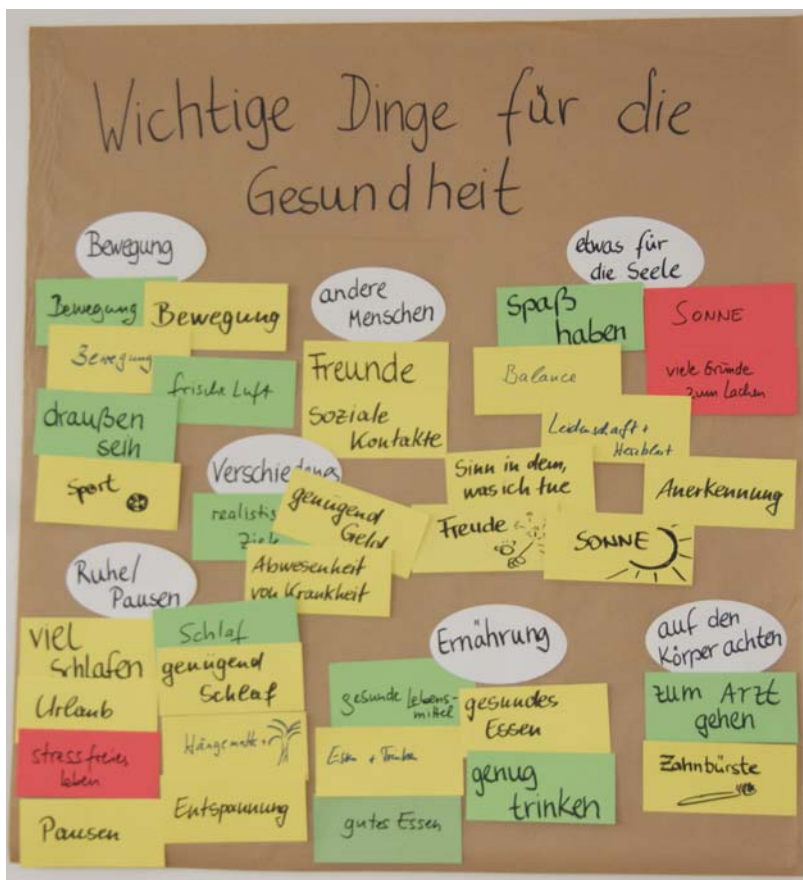 Wichtige Dinge für die
Gesundheit
Bewegung
Bewegung
Bewegung
Bewegung
frische Luft
draußen
sein
Sport
andere
Menschen
Freunde
Soziale
Kontakte
etwas für
die Seele
Spaß
haben
SONNE
viele Gründe
zum Lachen
Balance
Leidenschaft +
Herzblut
Sinn in dem,
was ich tue
Anerkennung
Freude
SONNE
Verschiedenes
realistische
Ziele
genügend
Geld
Abwesenheit
von Krankheit
Ruhe/
Pausen
viel
schlafen
Schlaf
genügend
Schlaf
Urlaub
stressfreies
Leben
Hängematte +
Pausen
Entspannung
Ernährung
gesunde Lebens-
mittel
gesundes
Essen
Essen + Trinken
genug
trinken
gutes Essen
auf den
Körper achten
zum Arzt
gehen
Zahnbürste